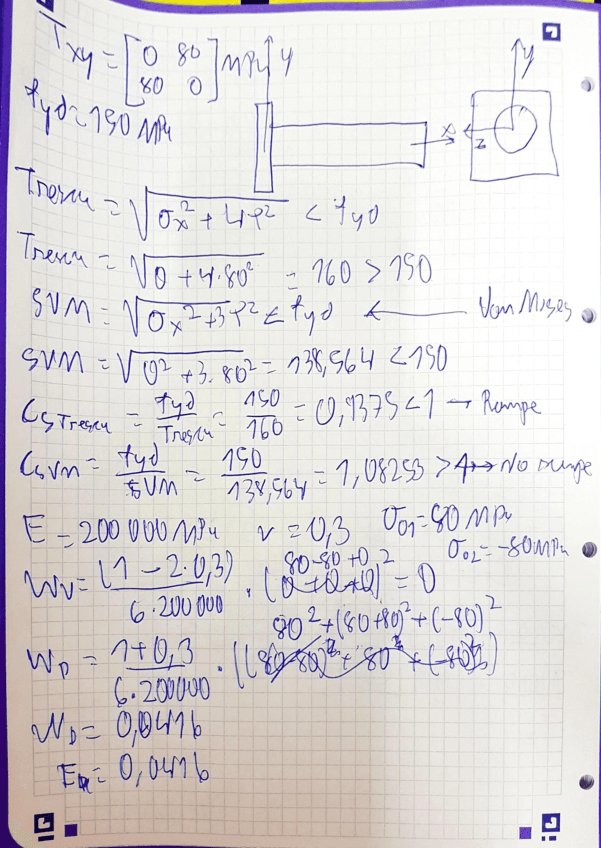 Txy = [0 80
80 0] MPa y y
fyd = 150 MPa x z
Tresca = √σx² + 4τ² < fyd
Tresca = √0 + 4·80² = 160 > 150
SVM = √σx² + 3τ² < fyd ← Von Mises
SVM = √0² + 3·80² = 138,564 < 150
CsTresca = fyd/Tresca = 150/160 = 0,9375 < 1 → Rompe
CsVM = fyd/SVM = 150/138,564 = 1,08253 > 1 → No rompe
E = 200 000 MPa ν = 0,3 σ01 = 80 MPa
σ02 = -80 MPa
80-80+0 2
Wv = (1 - 2·0,3)/6·200 000 · (0+0+0) = 0
80² + (80+80)² + (-80)²
WD = 1+0,3/6·200000 · ((80-80)² + 80² + (-80)²)
WD = 0,0416
= 0,0416